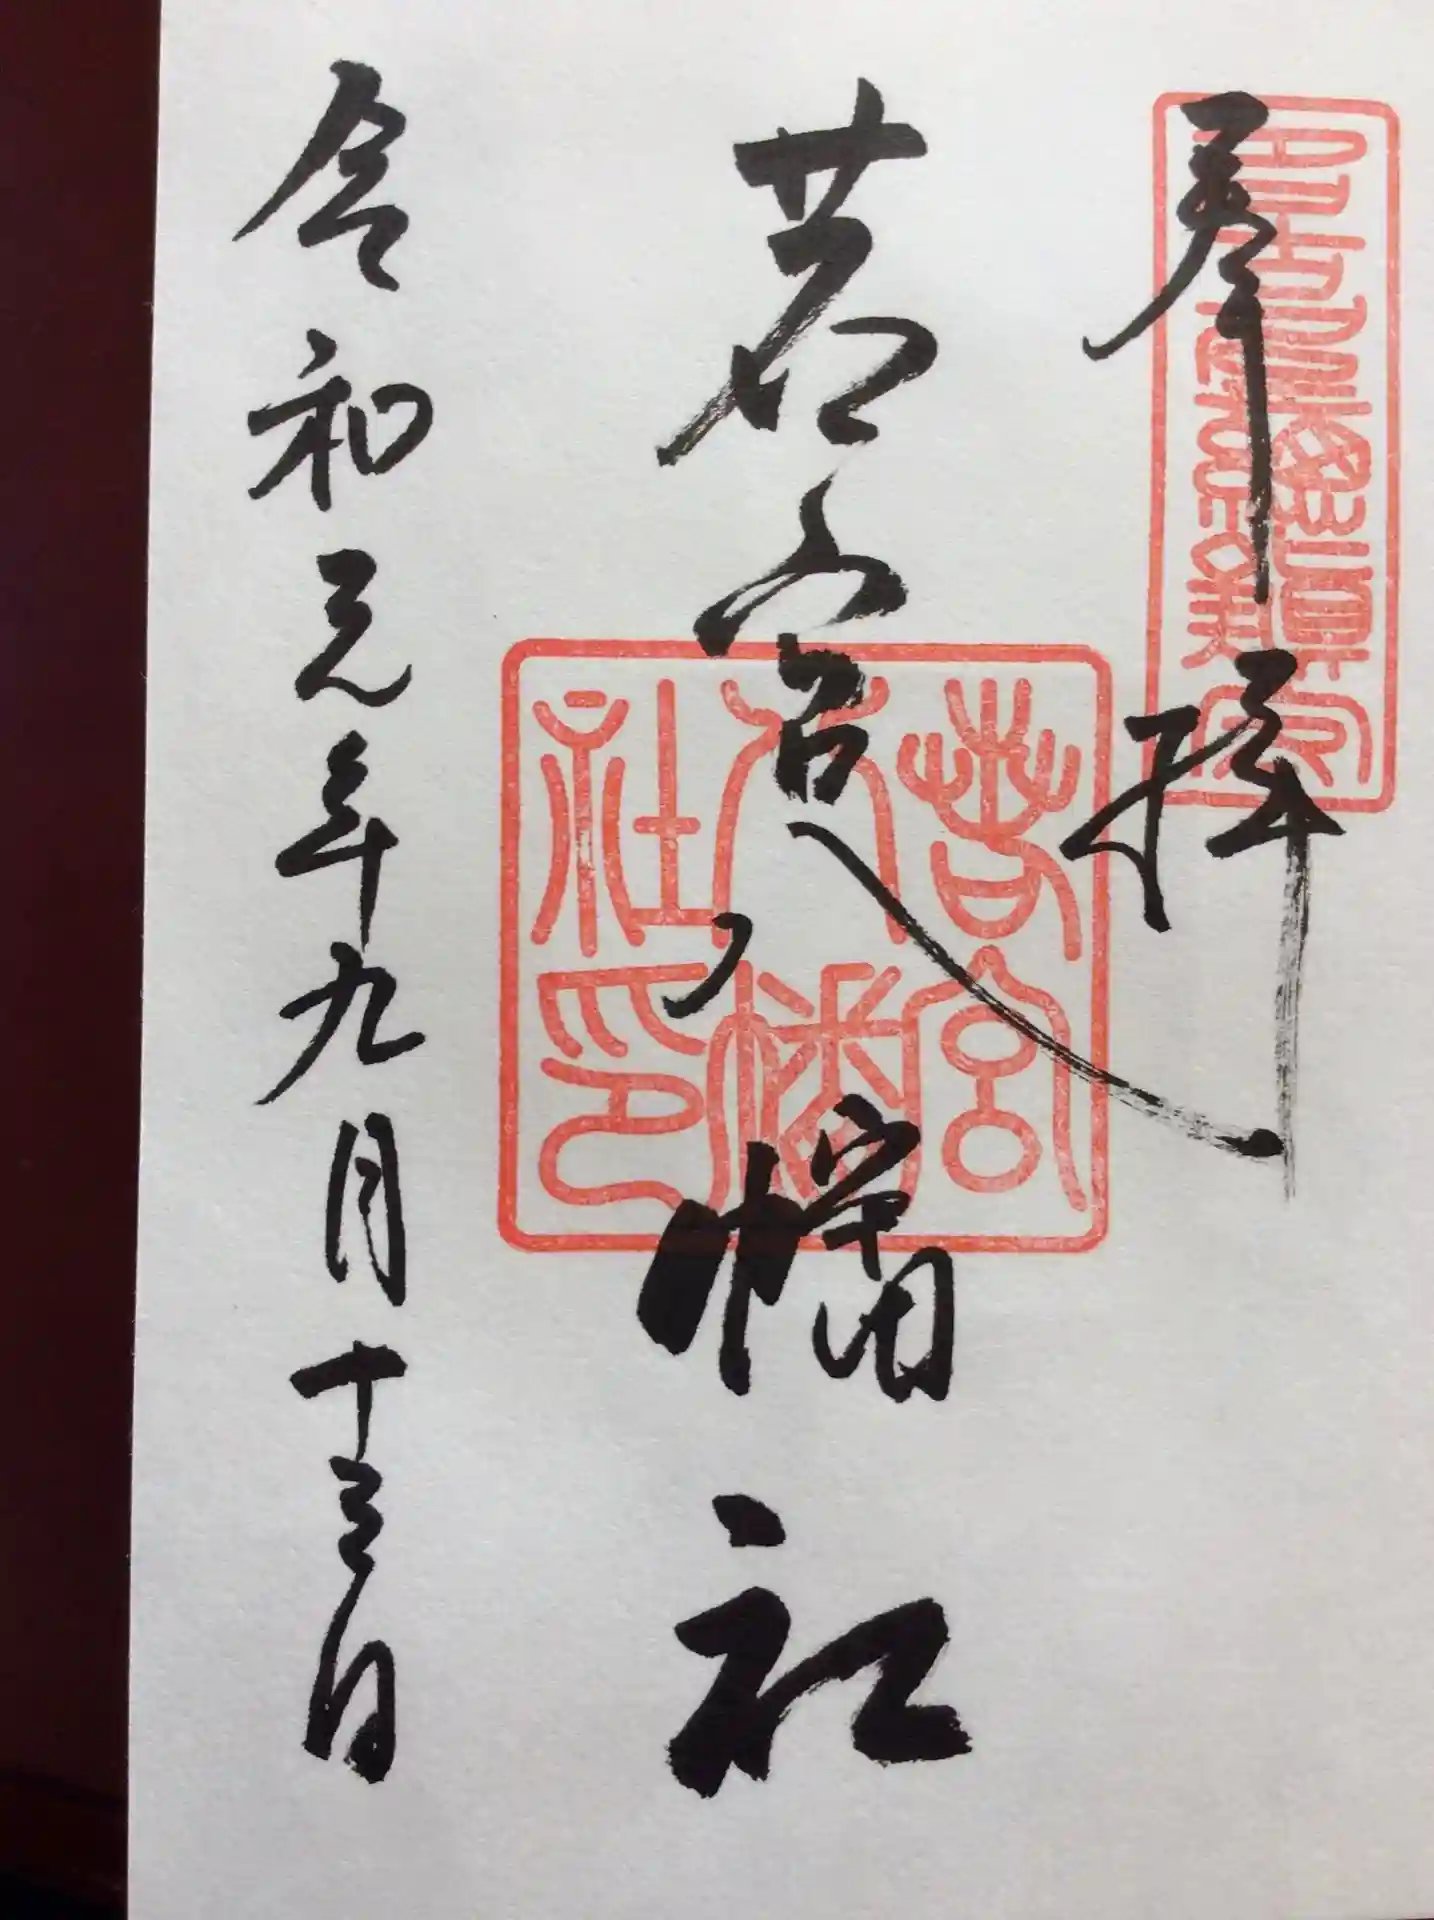 奉拝
若宮八幡社
若宮八幡社印
令和元年九月十三日